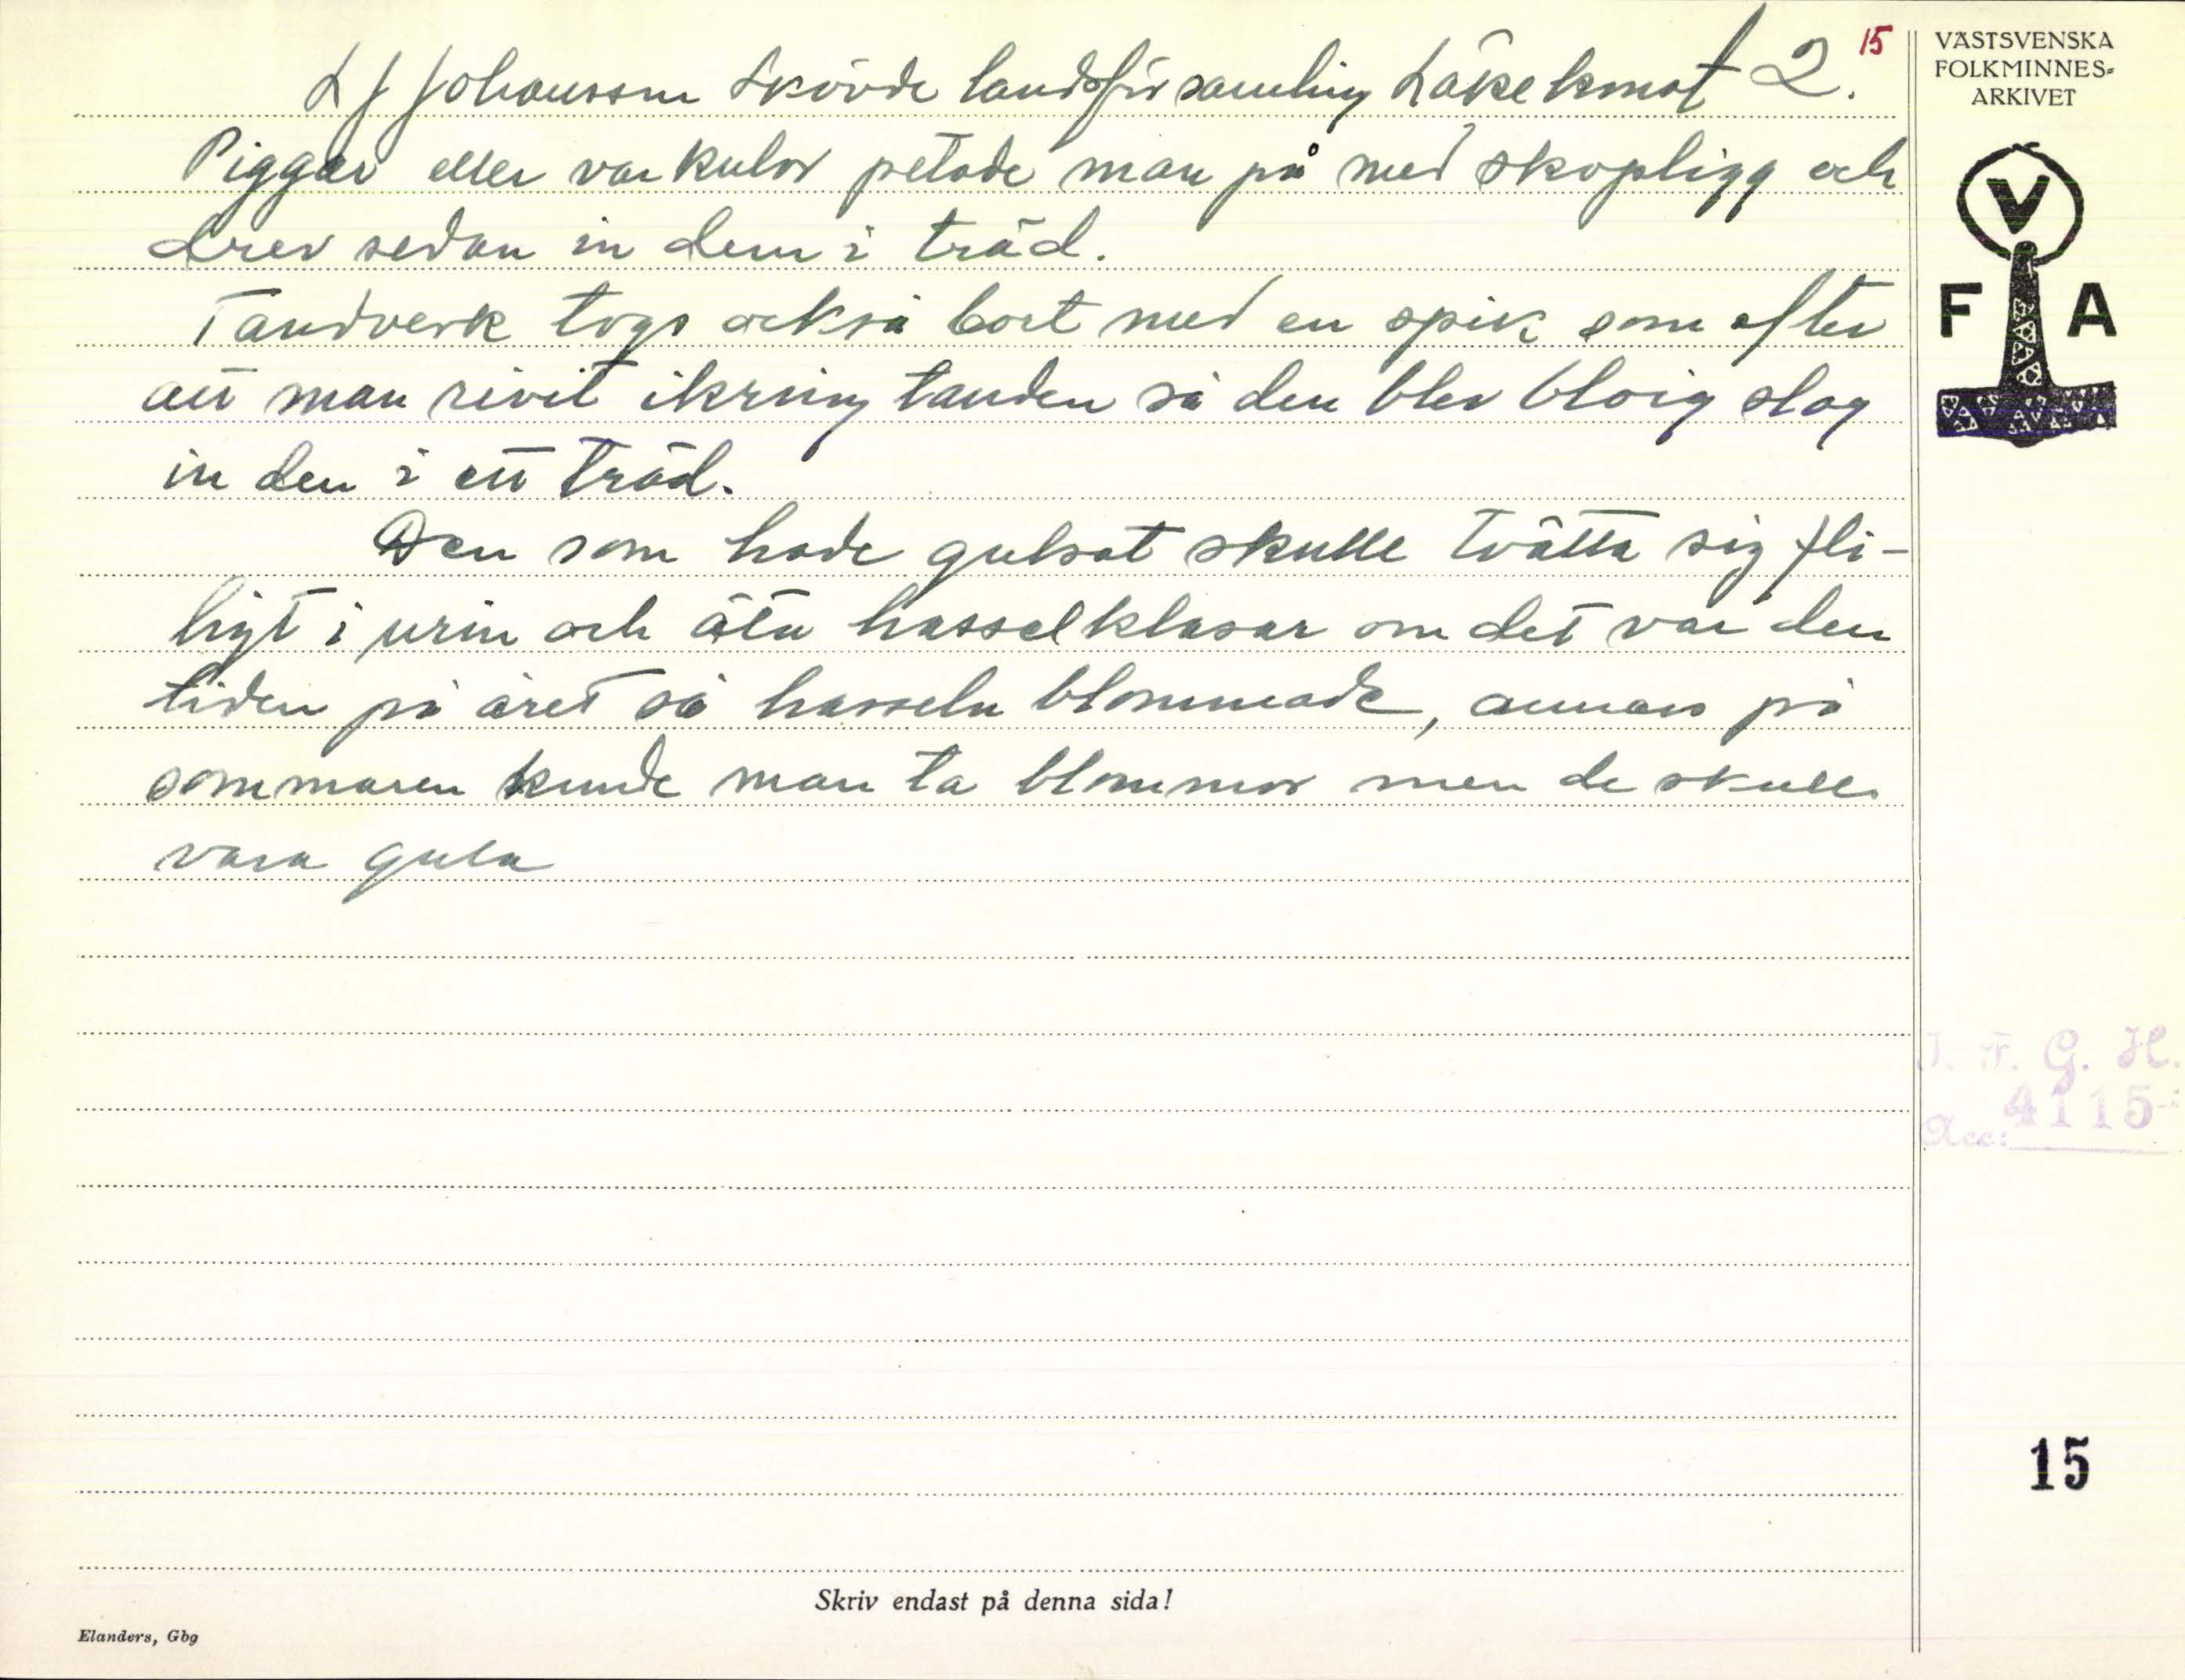 L J Johansson Skövde landsförsamling Läkekonst 2. 15
Piggar eller varkulor petade man på med skopligg och
drev sedan in dem i träd.
Tandverk togs också bort med en spik som efter
att man rivit ikring tanden så den blev bloig slog
in den i ett träd.
Den som hade gulsot skulle tvätta sig fli-
ligt i urin och äta hasselklasar om det var den
tiden på året så hasseln blommade, annars på
sommaren kunde man ta blommor men de skulle
vara gula
VÄSTSVENSKA
FOLKMINNES-
ARKIVET
V
F A
I. F. G. H.
Acc: 4115
15
Skriv endast på denna sida!
Elanders, Gbg